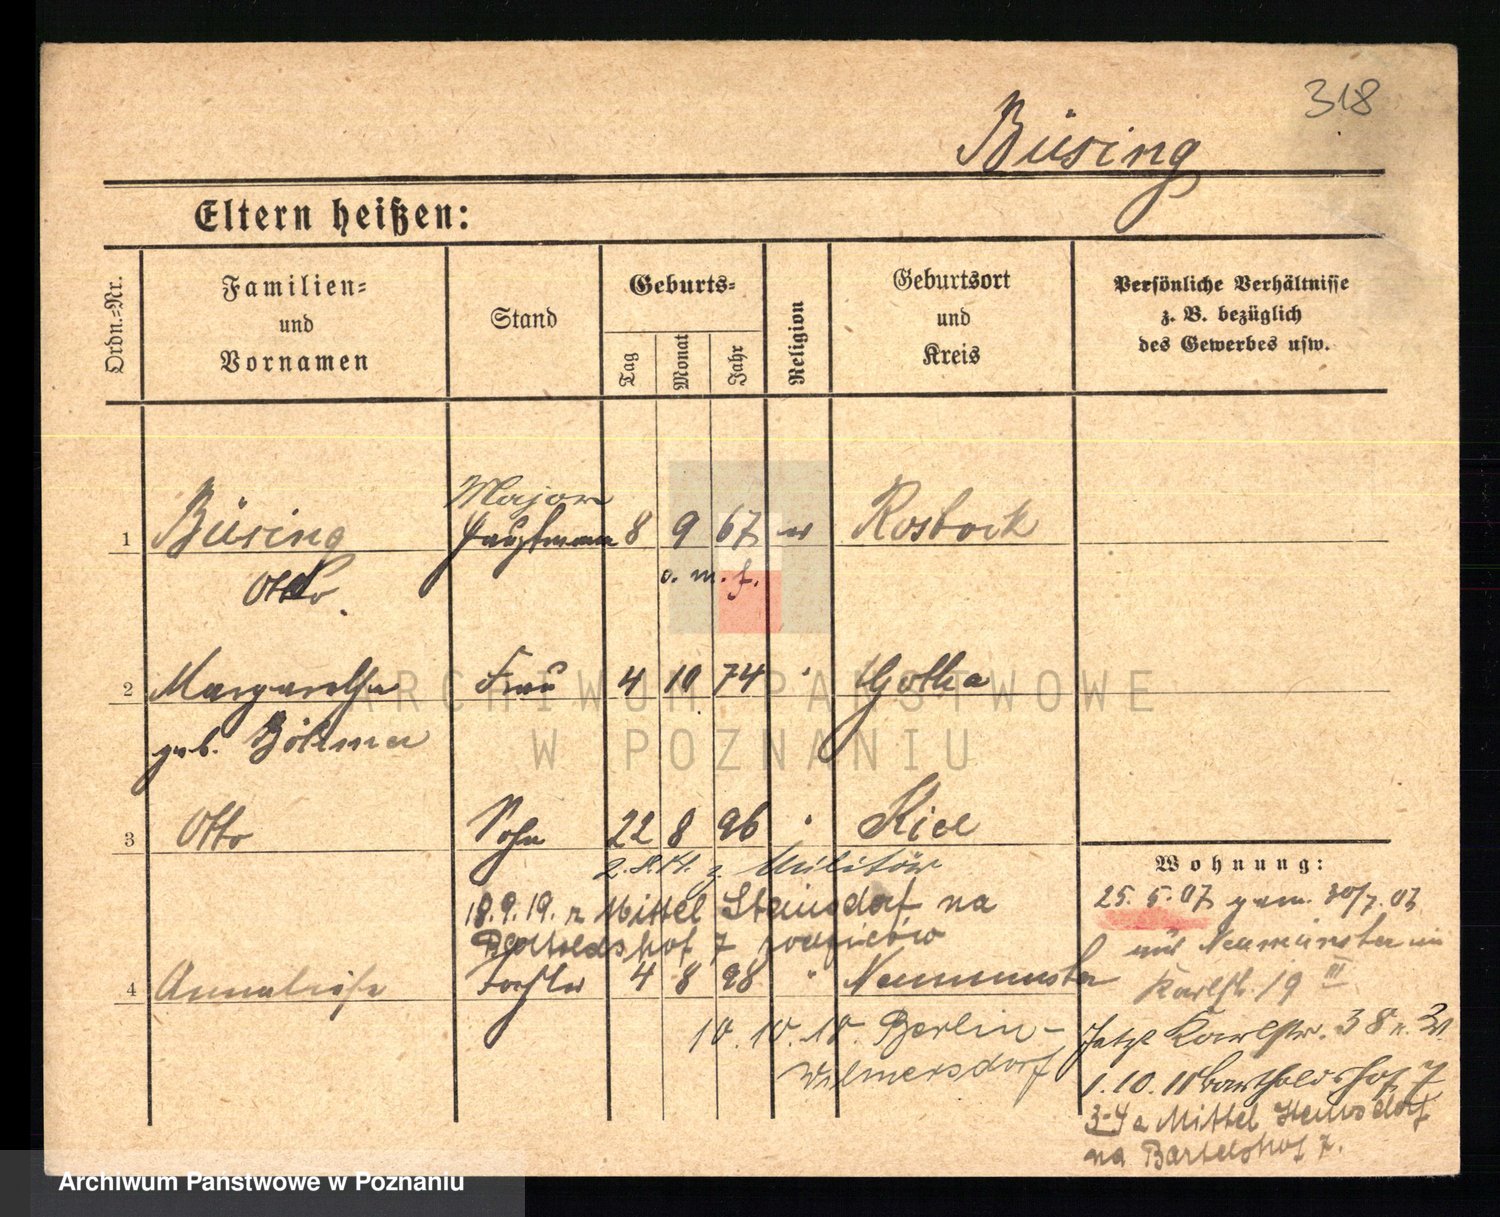 318
Büsing
Eltern heißen:
Ordn.-Nr.
Familien- und Vornamen
Stand
Geburts-
Tag
Monat
Jahr
Religion
Geburtsort und Kreis
Persönliche Verhältnisse z. B. bezüglich des Gewerbes usw.
Major
1 Büsing Hauptmann 8 9 67 Rostock
Otto
2 Margarethe Frau 4 10 74 " Gotha
geb. Böhmer
3 Otto Sohn 22 8 96 " Kiel
z. Militär
18.9.19. Mittel Steinsdorf na
Bartoldshof 7
4 Annaliese Tochter 4 8 98 " Neumünster
10. 10. 10. Berlin-
Wilmersdorf
Wohnung:
25. 5. 07 gem. 30/7. 07
aus Neumünster in
Karlstr. 19 III
Jetzt Karlstr. 38
1. 10. 11 Bartholdshof 7
3-4 a Mittel Steinsdorf
na Bartelshof 7.
ARCHIWUM PAŃSTWOWE
W POZNANIU
Archiwum Państwowe w Poznaniu